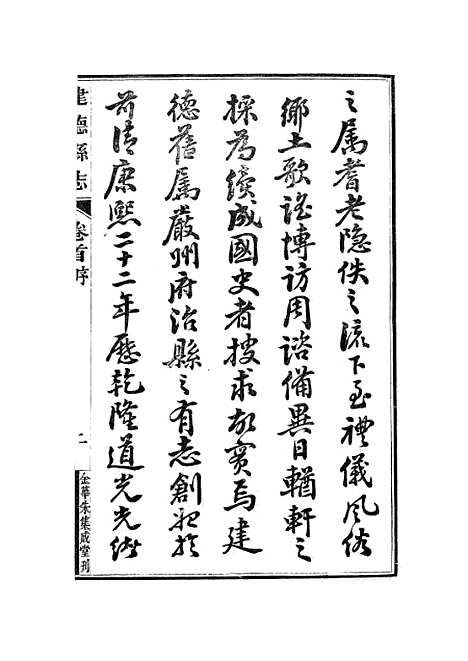 之属耆老隐佚之流下至禮儀風俗
鄉土歌謠博访周諮備異日輶軒之
採為續成國史者搜求故實焉建
德舊属嚴州府治縣之有志創始於
前清康熙二十二年歷乾隆道光光緒
建德縣志
卷首序
二
金華朱集成堂刊